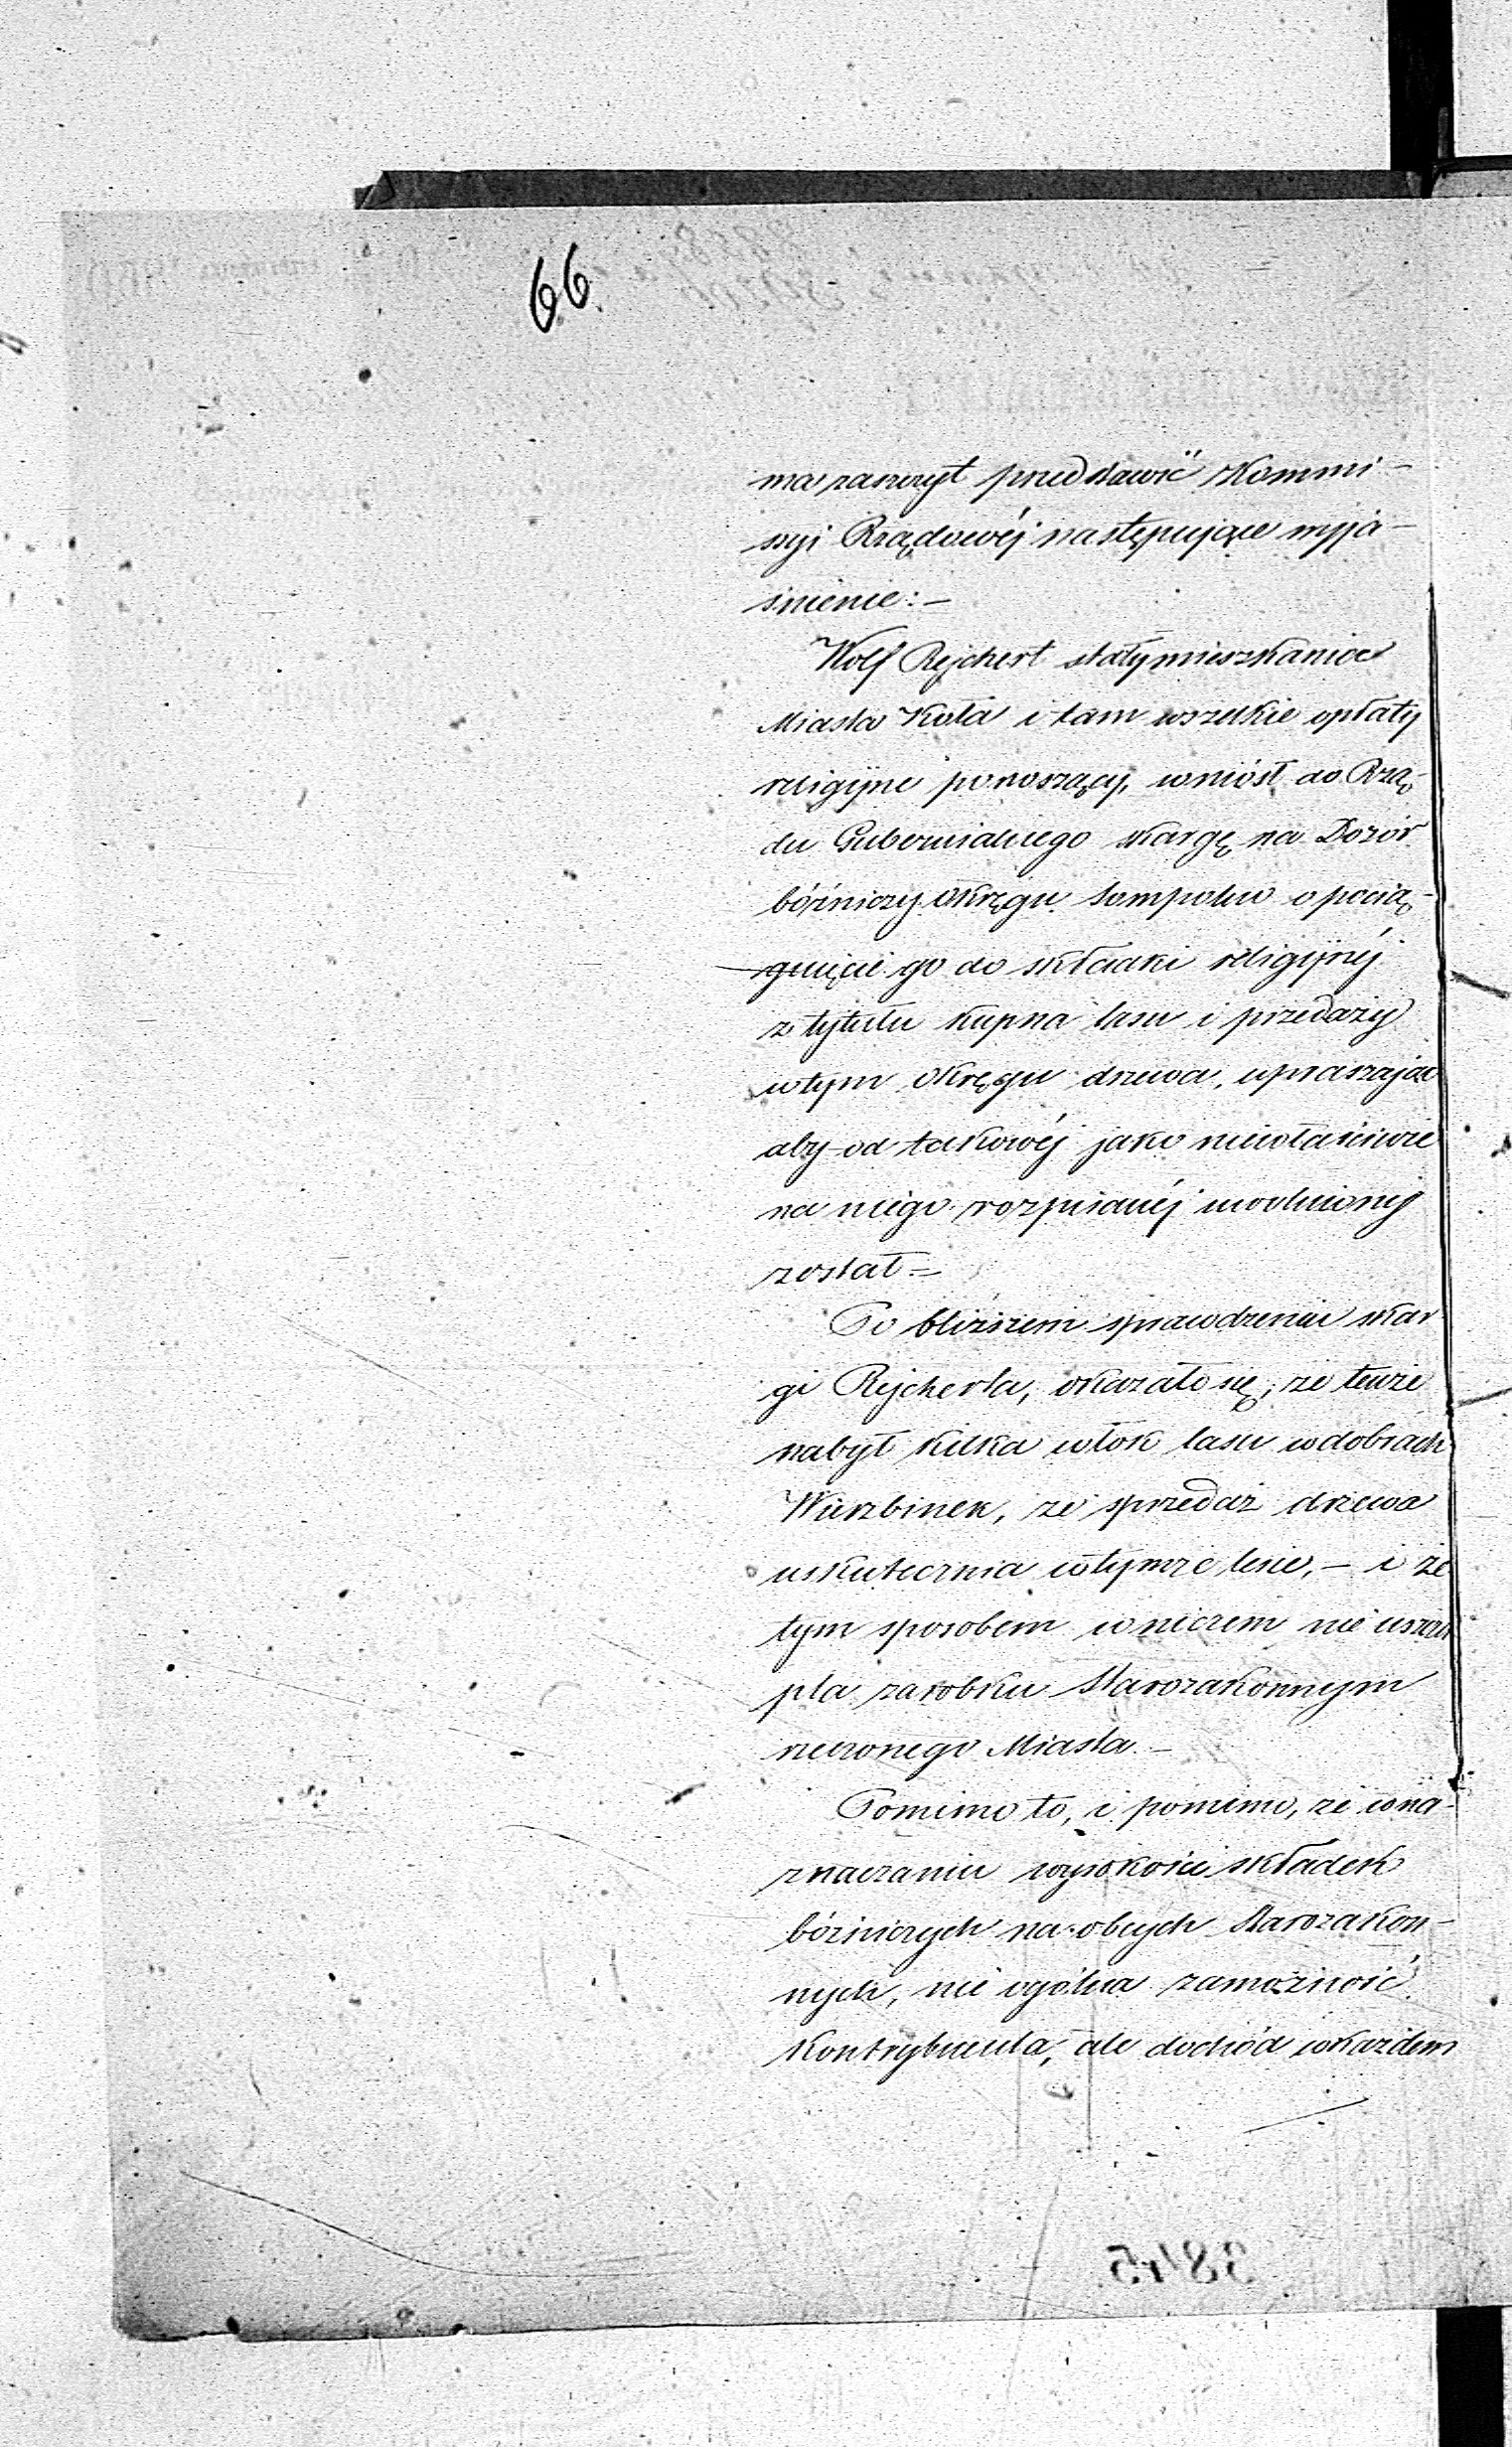 66
ma zaszczyt przedstawić Kommi-
syi Rządowéj następujące wyja-
śnienie:-
Wolf Rejchert stały mieszkaniec
Miasta Koła i tam wszelkie opłaty
religijne ponoszący, wniósł do Rzą-
du Gubernialnego skargę na Dozór
bóżniczy Okręgu Sompolno o pocią-
gnięcie go do składki religijnéj
z tytułu kupna lasu i przedaży
w tym Okręgu drzewa, upraszając
aby od takowéj jako niewłaściwie
na niego rozpisanéj uwolniony
został.=
Po bliższem sprawdzeniu skar
gi Rejcherta, okazało się, że tenże
nabył kilka włok lasu w dobrach
Wierzbinek, że sprzedaż drzewa
uskutecznia w tymże lesie,- i że
tym sposobem w niczem nie uszczu
pla zarobku Starozakonnym
rzeczonego Miasta.-
Pomimo to, i pomimo, że w na-
znaczaniu wysokości składek
bóżniczych na obcych Starozakon-
nych, nie ogólna zamożność
Kontrybuenta, ale dochód w każdem
3845